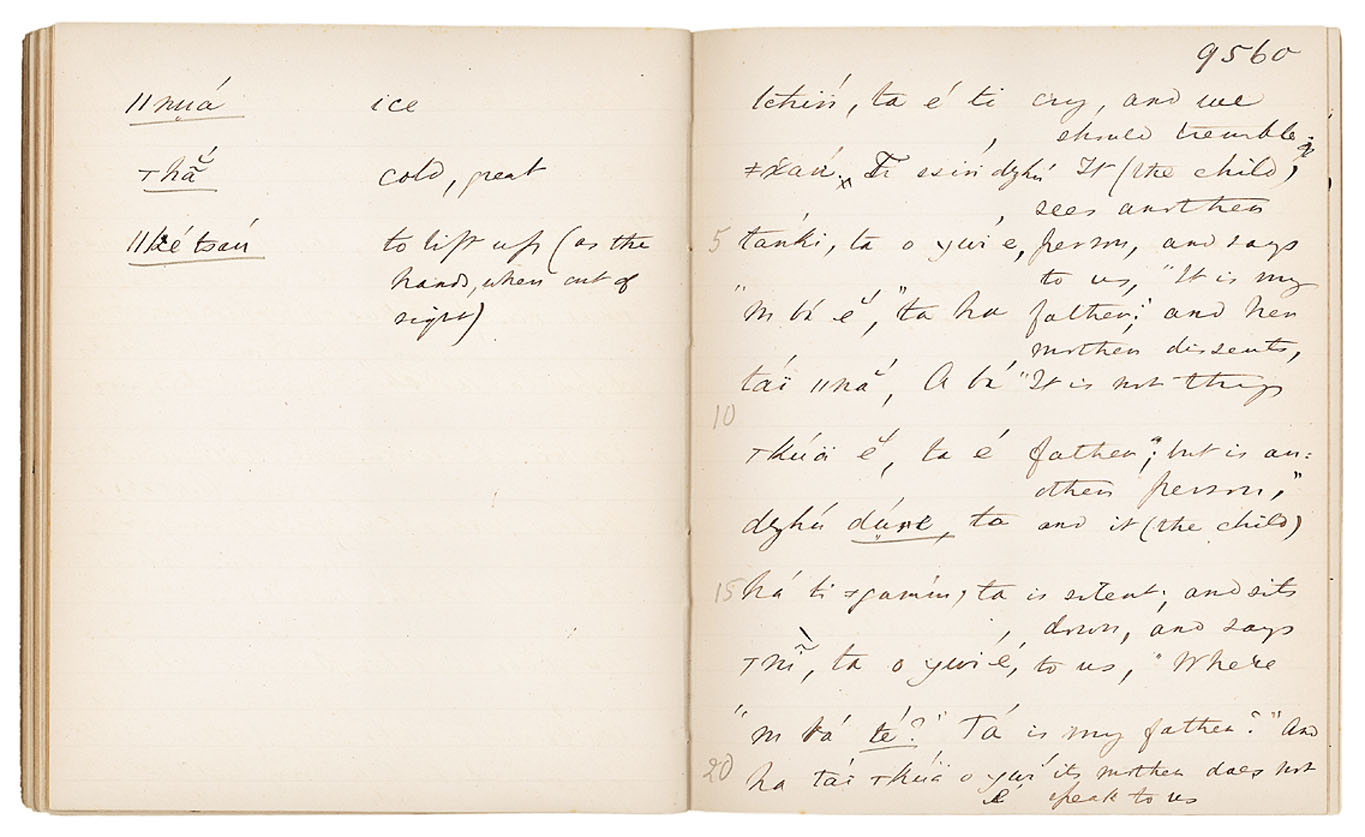 ǁnu̥á ice
ꞱhẮ cold, great
to lift up (as the
hands, when out of
sight)
9560
ta é ti cry, and we
should tremble.
It (the child)
sees another
5 tánki, ta o gwi é, person, and says
to us, "It is my
"m bá ĕ́," ta ha father;" and her
mother dissents,
tái ǁnắ, A bá "It is not thy
10
ꞱkúÏ ĕ́, ta é father"; but is an=
other person,"
dzhú dúre, ta and it (the child)
15 há ti ta is silent; and sits
down, and says
ta o gwi é, to us, "Where
"m bá té?" Tá is my father?" And
20 ha tái o gwí its mother does not
é speak to us